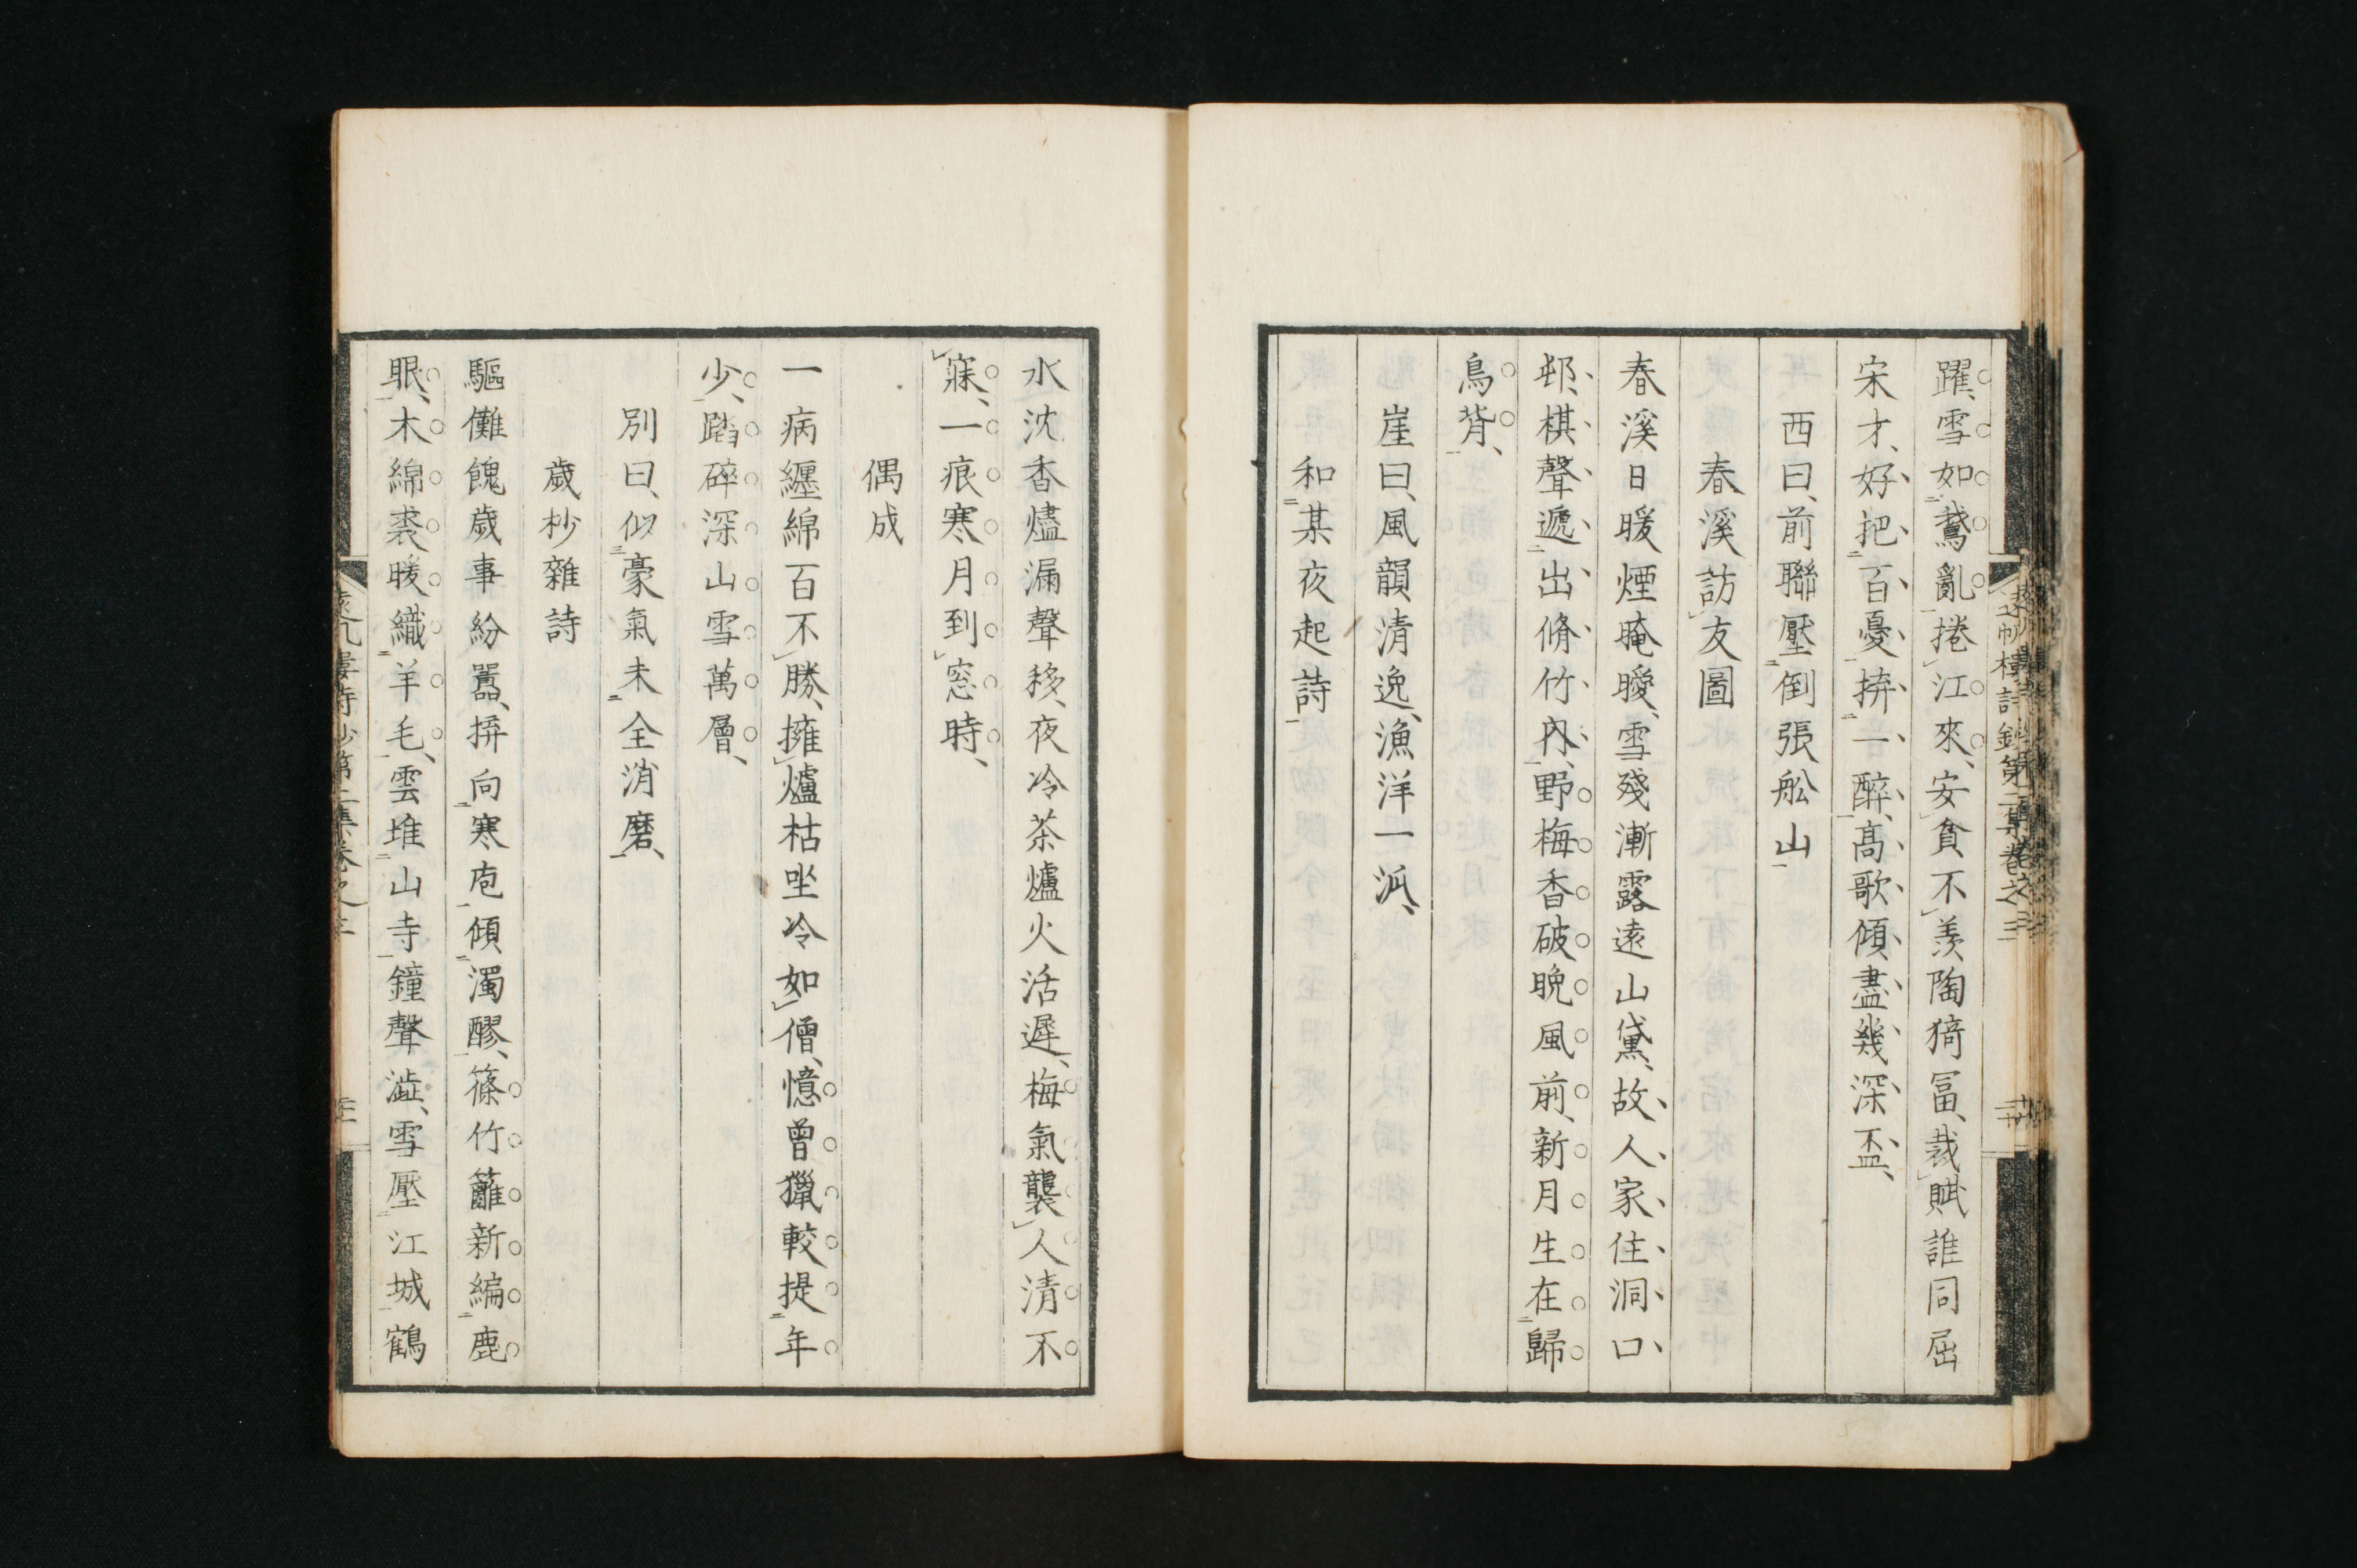 躍、雪如鵞亂捲江來、安貧不羨陶猗冨、裁賦誰同屈
宋才、好把百憂拚一醉、高歌傾盡幾深盃、
西曰、前聯壓倒張舩山
春溪訪友圖
春溪日暖煙晻曖、雪殘漸露遠山黛、故人家住洞口
邨、棋聲遞出脩竹內、野梅香破晩風前、新月生在歸
鳥背、
崖曰、風韻清逸、漁洋一派、
和某夜起詩
水沈香燼漏聲移、夜冷茶爐火活遲、梅氣襲人清不
寐、一痕寒月到窓時、
偶成
一病纏綿百不勝、擁爐枯坐冷如僧、憶曾獵較提年
少、踏碎深山雪萬層、
別曰、似豪氣未全消磨、
歲杪雜詩
驅儺餽歲事紛囂、拚向寒庖傾濁醪、篠竹籬新編鹿
眼、木綿裘暖織羊毛、雲堆山寺鐘聲澁、雪壓江城鶴